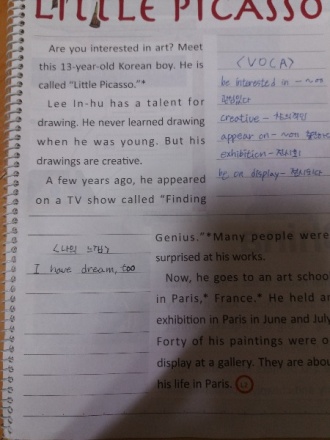 LITTLE PICASSO
Are you interested in art? Meet
this 13-year-old Korean boy. He is
called "Little Picasso."*
Lee In-hu has a talent for
drawing. He never learned drawing
when he was young. But his
drawings are creative.
A few years ago, he appeared
on a TV show called "Finding
<VOCA>
be interested in - ~에
creative - 창의적인
appear on - ~에
exhibition - 전시회
be on display -
Genius."* Many people were
surprised at his works.
Now, he goes to an art school
in Paris,* France.* He held an
exhibition in Paris in June and July
Forty of his paintings were o
display at a gallery. They are abou
his life in Paris.
<나의 느낌>
I have dream, too